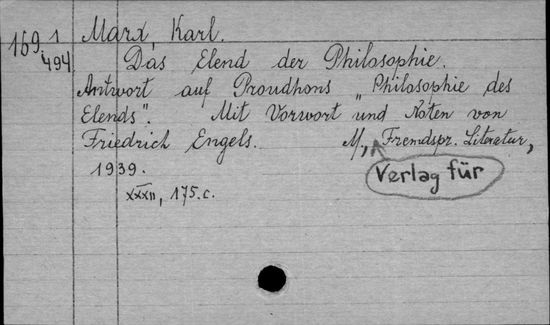 169.1 Marx, Karl.
494 Das Elend der Philosophie.
Antwort auf Proudhons „Philosophie des
Elends". Mit Vorwort und Noten von
Friedrich Engels. M., Fremdspr. Literatur,
Verlag für
1939.
XXXII, 175.c.